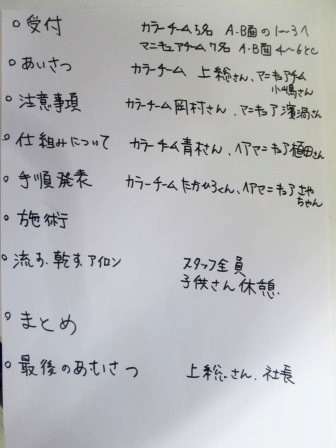 ○受付 カラーチーム5名 A・B面の1〜3へ
マニキュアチーム7名 A・B面4〜6と
○あいさつ カラーチーム 上総さん、マニキュアチーム
小嶋さん
○注意事項 カラーチーム岡村さん、マニキュア濱渦さん
○仕組みについて カラーチーム青村さん、ヘアマニキュア植田さん
○手順発表 カラーチームたかひろくん、ヘアマニキュアさや
ちゃん
○施術
○流す、乾す、アイロン スタッフ全員
子供さん休憩
○まとめ
○最後のあいさつ 上総さん、社長